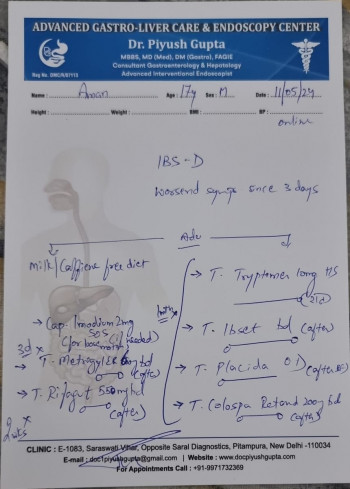 ADVANCED GASTRO-LIVER CARE & ENDOSCOPY CENTER
Dr. Piyush Gupta
MBBS, MD (Med), DM (Gastro), FAGIE
Consultant Gastroenterology & Hepatology
Advanced Interventional Endoscopist
Name : Aman Age : 17y Sex : M Date : 11/05/24
Height : Weight : BMI : BP :
online
IBS-D
since 3 days
Adv
Milk/Caffiene free diet
→ Cap. Imodium 2mg
SOS
(for bowel if needed)
3d x
→ T. Metrogyl bd
(after)
→ T. Rifagut 550mg bd
(after)
2 wks x
→ T. Tryptomer 10mg HS
→ T. Ibset bd (after)
→ T. Placida OD
→ T. Colospa Retard 200mg bd
(after)
CLINIC : E-1083, Saraswati Vihar, Opposite Saral Diagnostics, Pitampura, New Delhi -110034
E-mail : doc1piyushgupta@gmail.com | Website : www.docpiyushgupta.com
For Appointments Call : +91-9971732369